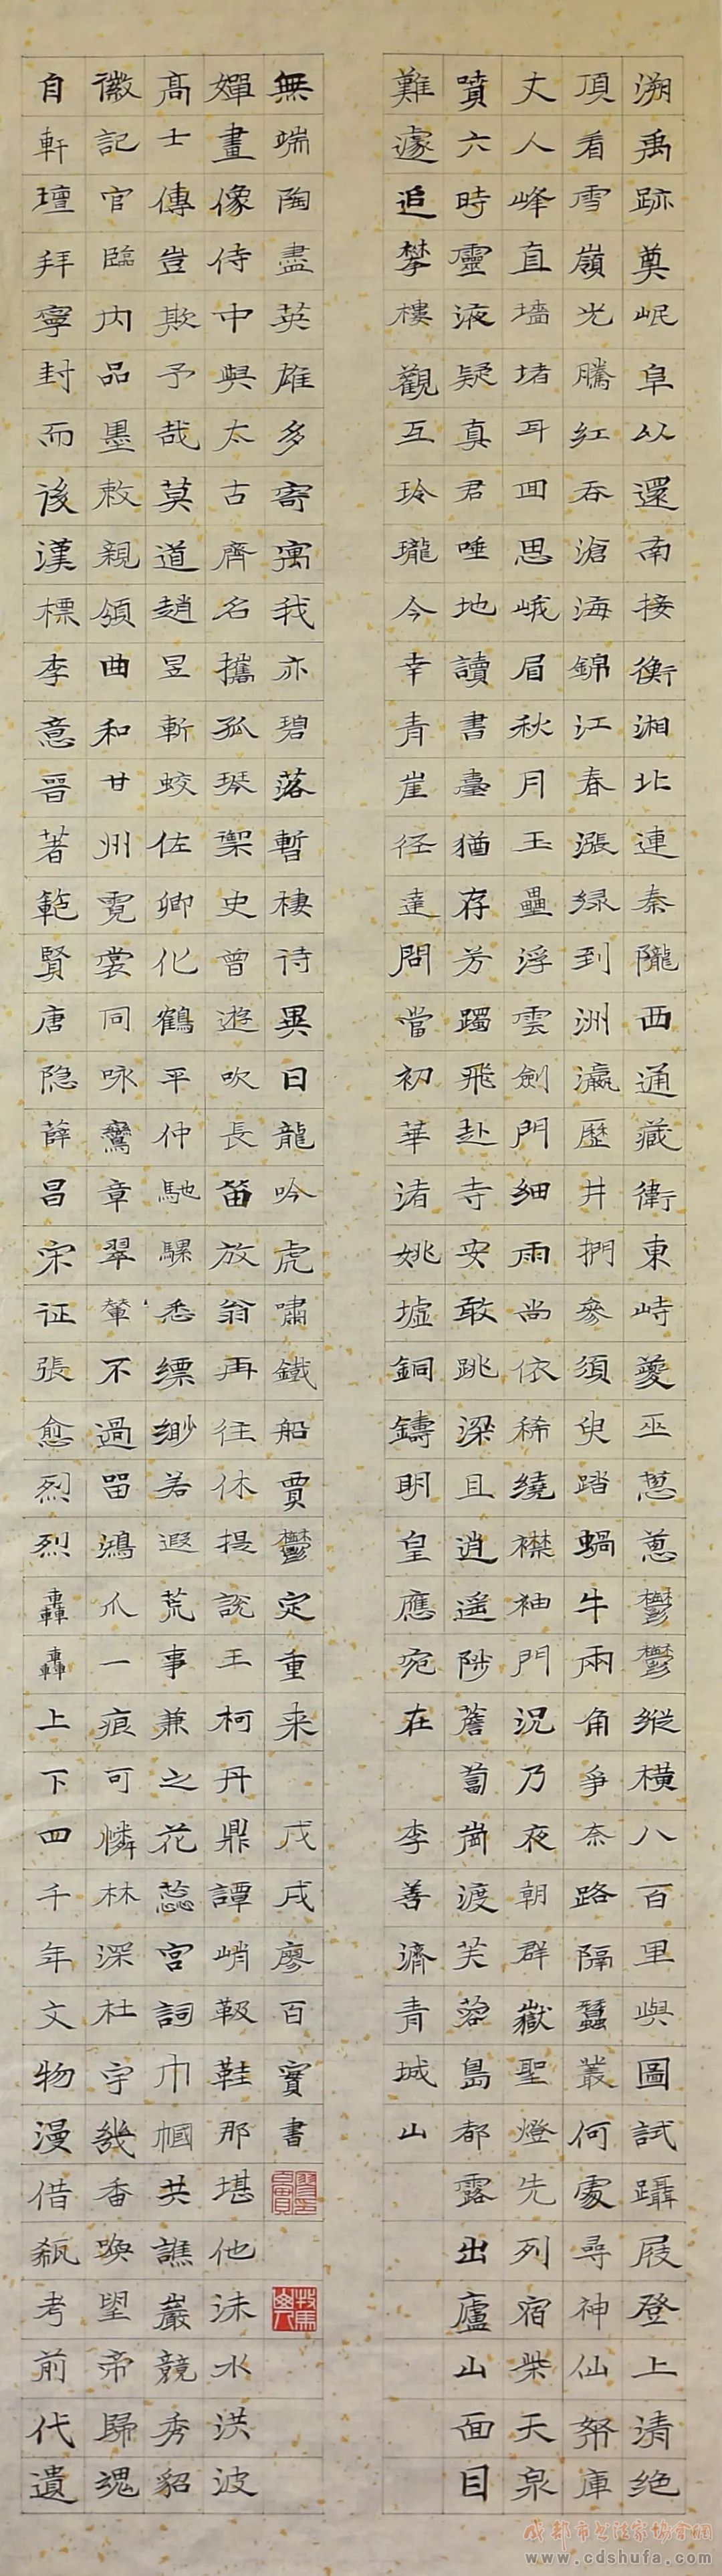 溯禹跡奠岷阜以還南接衡湘北連秦隴西通藏衛東峙夔巫葱蔥鬱鬱縱橫八百里與圖試躡屐登上清绝
頂看雪嶺光騰紅吞滄海錦江春漲绿到洲瀛歷井捫參須臾踏蝸牛兩角爭奈路隔蠶叢何處尋神仙帑庫
丈人峰直墻堵耳回思峨眉秋月玉壘浮雲劍門細雨尚依稀繞襟袖門況乃夜朝群嶽聖燈先列宿柴天泉
噴六時靈液疑真君唾地讀書臺猶存芳躅飛赴寺安敢跳梁且逍遥陟薝蔔崗渡芙蓉島都露出廬山面目
難遽追攀樓觀互玲瓏今幸青崖径達問當初華渚姚墟銅鑄明皇應宛在
李善濟青城山
自軒壇拜寧封而後漢標李意晉著範賢唐隐薛昌宋征張愈烈烈轟轟上下四千年文物漫借瓻考前代遺
徽記官臨内品墨敕親頒曲和甘州霓裳同咏鸞章翠輦不過留鴻爪一痕可憐林深杜宇幾番喚望帝歸魂
高士傳豈欺予哉莫道趙昱斬蛟佐卿化鶴平仲馳騾悉縹緲若遐荒事兼之花蕊宮詞巾幗共譙巖競秀貂
嬋畫像侍中與太古齊名攜孤琴禦史曾遊吹長笛放翁再往休提說王柯丹鼎譚峭靸鞋那堪他沫水洪波
無端陶盡英雄多寄寓我亦碧落暫棲待異日龍吟虎嘯鐵船賈鬱定重来
戊戌廖百實書
成都市书法家協會網
www.cdshufa.com